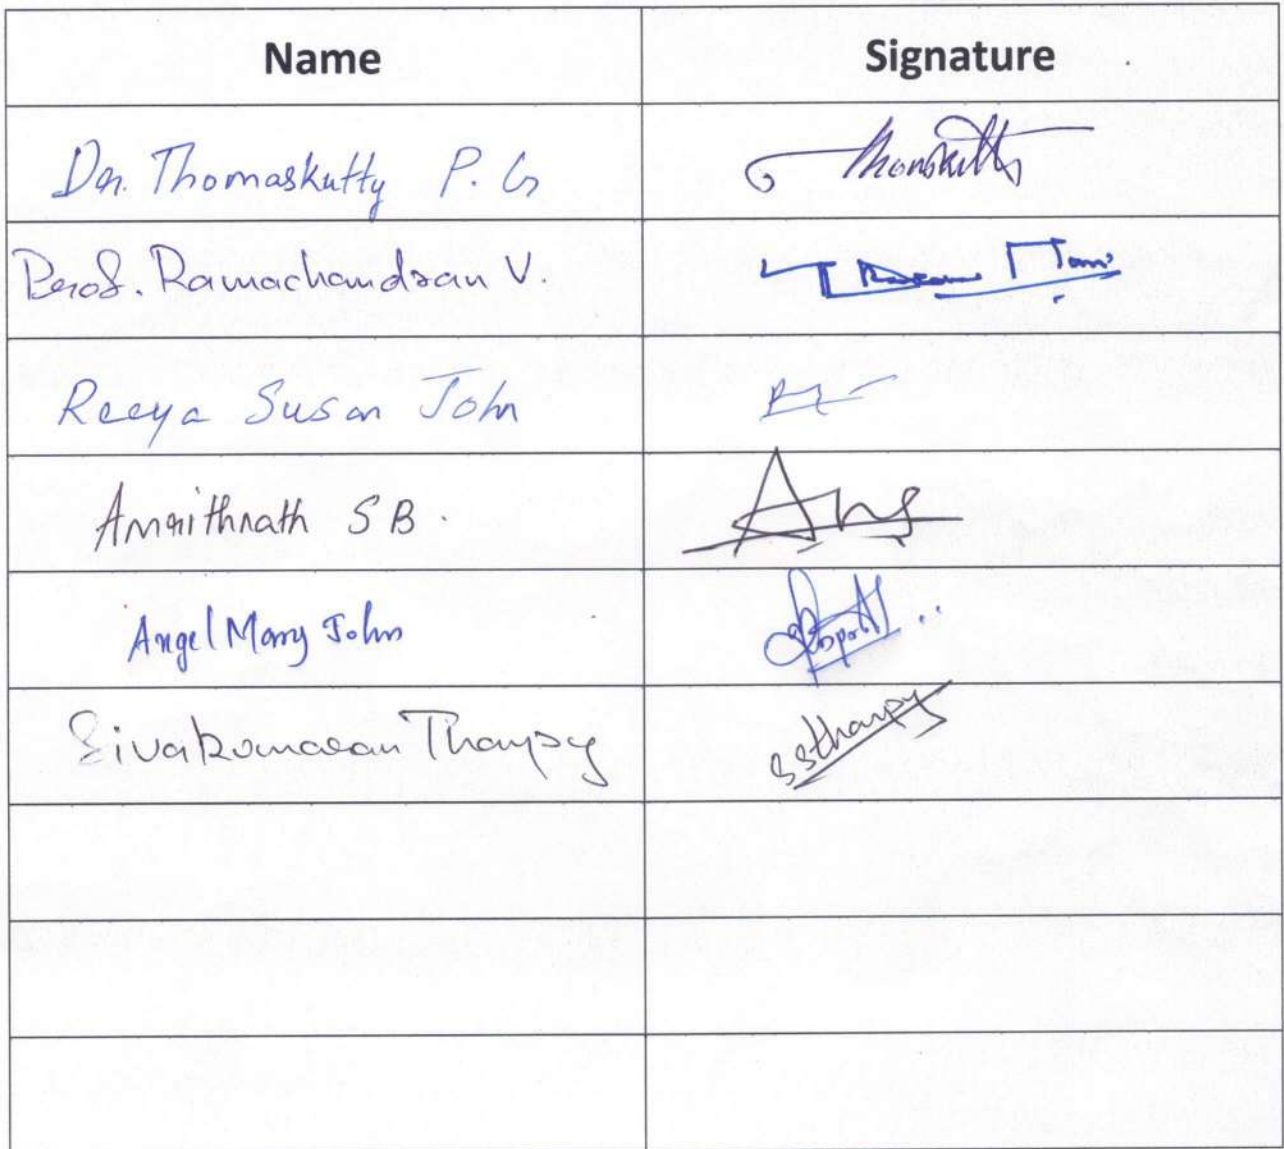 Name Signature
Dr. Thomaskutty P. G
Prof. Ramachandran V.
Reeya Susan John
Amrithnath S B.
Angel Mary John
Sivakumaran Thampy ssthampy